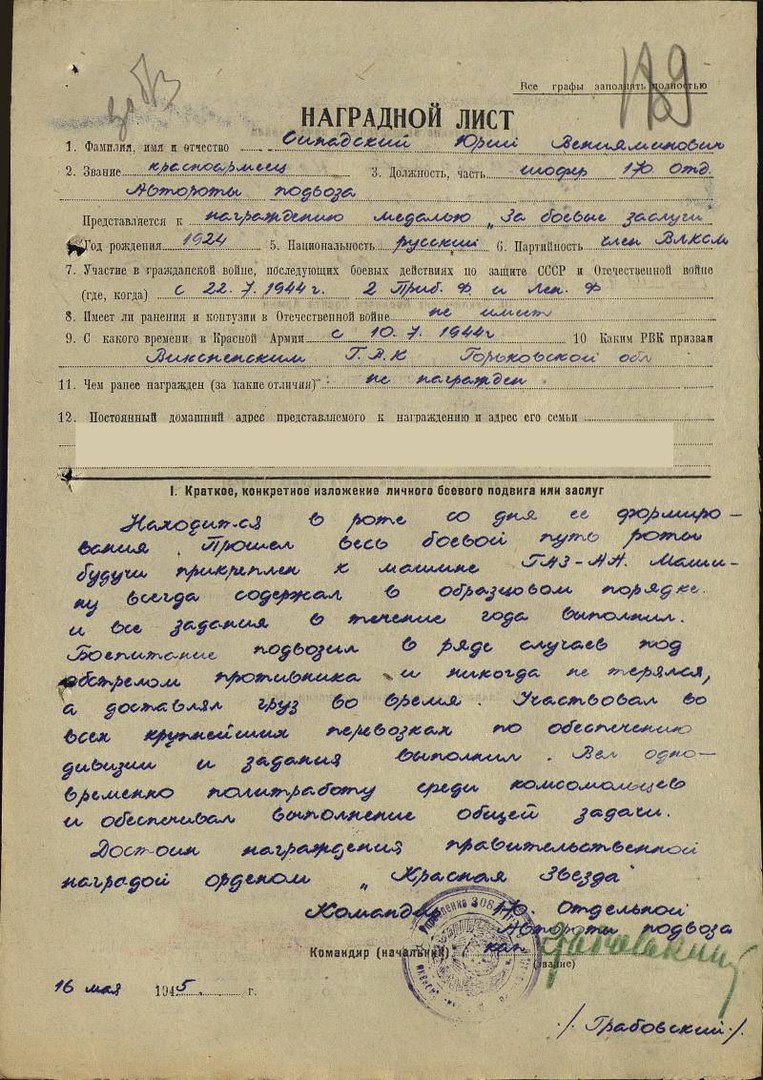 Все графы заполнять полностью
НАГРАДНОЙ ЛИСТ
1. Фамилия, имя и отчество Синадский Юрий Вениаминович
2. Звание красноармеец 3. Должность, часть шофер 170 отд.
Автороты подвоза
Представляется к награждению медалью „За боевые заслуги"
4. Год рождения 1924 5. Национальность русский 6. Партийность член ВЛКСМ
7. Участие в гражданской войне, последующих боевых действиях по защите СССР и Отечественной войне
(где, когда) с 22.7.1944 г. 2 Приб. Ф и Лен. Ф
8. Имеет ли ранения и контузии в Отечественной войне не имеет
9. С какого времени в Красной Армии с 10.7.1944г 10 Каким РВК призван
Горьковской обл
11. Чем ранее награжден (за какие отличия) не награжден
12. Постоянный домашний адрес представляемого к награждению и адрес его семьи
I. Краткое, конкретное изложение личного боевого подвига или заслуг
Находится в роте со дня ее формиро-
вания. Прошел весь боевой путь роты
будучи прикреплен к машине ГАЗ-АА. Маши-
ну всегда содержал в образцовом порядке.
и все задания в течение года выполнил.
Боепитание подвозил в ряде случаев под
обстрелом противника и никогда не терялся,
а доставлял груз во время. Участвовал во
всех крупнейших перевозках по обеспечению
дивизии и задания выполнил. Вел одно-
временно политработу среди комсомольцев
и обеспечивал выполнение общей задачи.
Достоин награждения правительственной
наградой орденом „Красная Звезда"
Командир 170 отдельной
Автороты подвоза
Командир (начальник) кап
(звание)
16 мая 1945 г.
/Грабовский/.